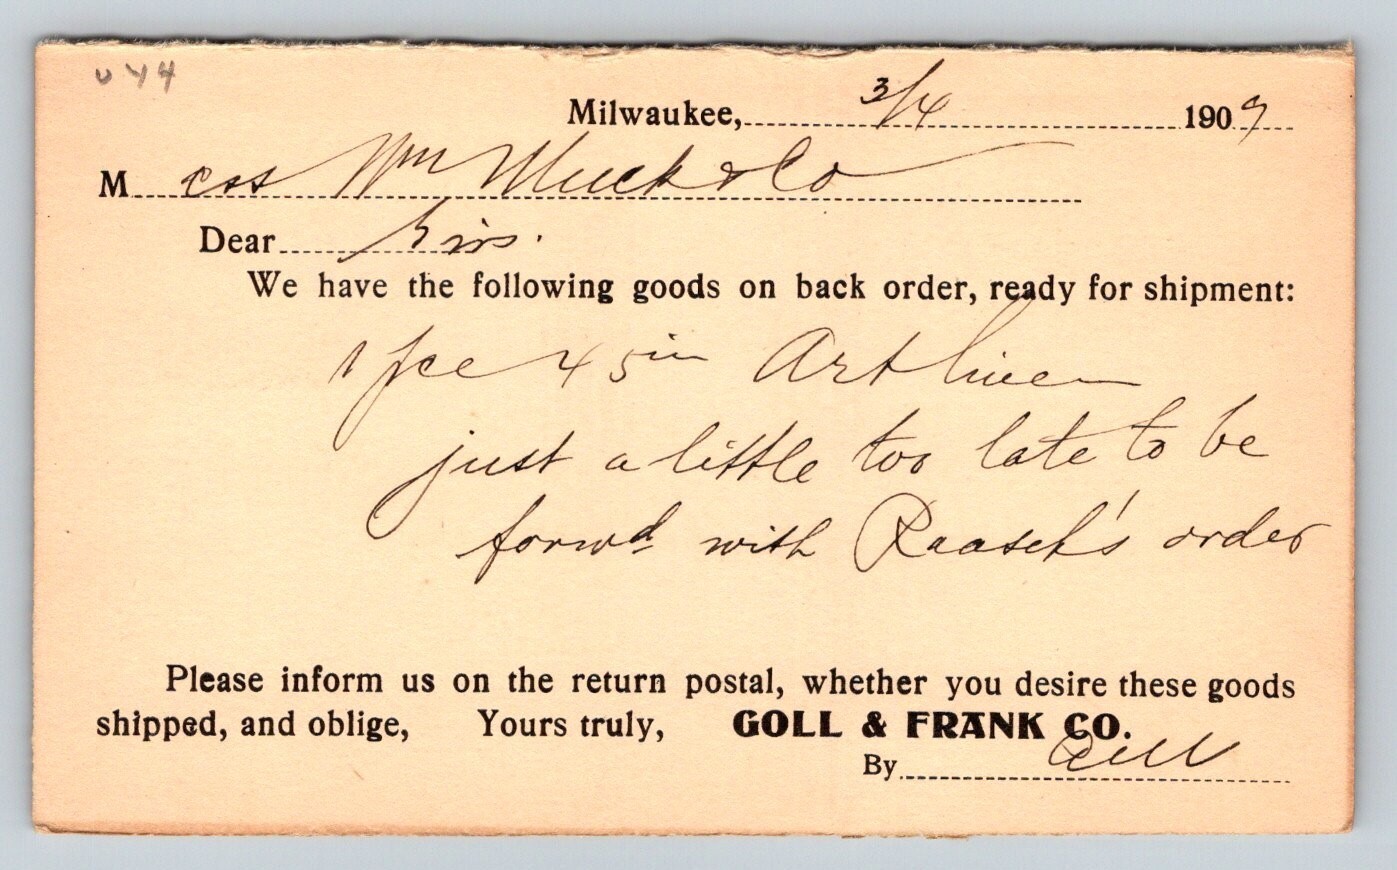 Milwaukee, 3/4 1909
Mess Wm Mueck & Co
Dear Sirs.
We have the following goods on back order, ready for shipment:
1 pce 45 in Art linen
just a little too late to be
forwd with Raasch's order
Please inform us on the return postal, whether you desire these goods
shipped, and oblige, Yours truly, GOLL & FRANK CO.
By